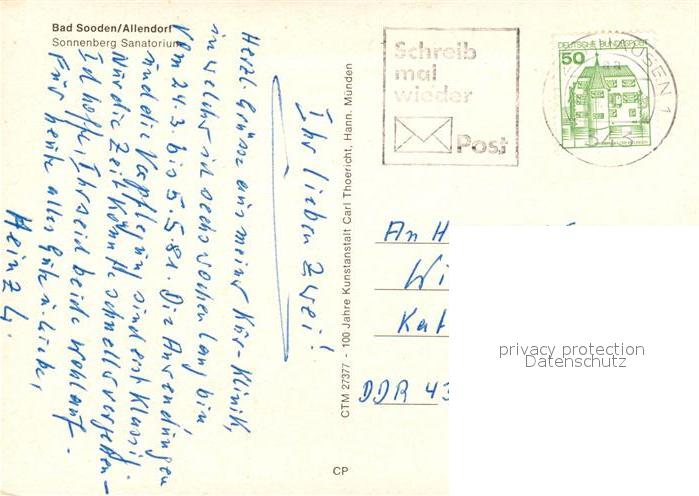 Bad Sooden/Allendorf
Sonnenberg Sanatorium
Ihr lieben Zwei!
Herzl. Grüsse aus meiner Kur-Klinik,
in welcher ich sechs Wochen lang bin
vom 24.3. bis 5.5.81. Die Anwendungen
und die Verpflegung sind erst Klassig.
Nur die Zeit könnte schneller vergehen-
Ich hoffe, Ihr seid beide wohlauf.
Für heute alles Gute u. Liebe,
Heinz
CTM 27377 - 100 Jahre Kunstanstalt Carl Thoericht, Hann. Münden
CP
Schreib
mal
wieder
Post
DEUTSCHE BUNDESPOST
50
USEN 1
An H
Wi
Kat
DDR 43
privacy protection
Datenschutz